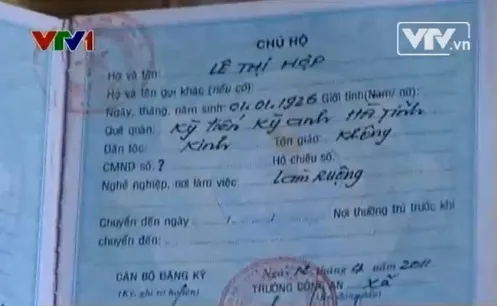 VTV1
VTV.vn
CHỦ HỘ
Họ và tên: LÊ THỊ HỢP
Họ và tên gọi khác (nếu có):
Ngày, tháng, năm sinh: 01.01.1926 Giới tính (Nam/ nữ):
Quê quán: Kỳ tiến Kỳ anh Hà Tĩnh
Dân tộc: Kinh Tôn giáo: Không
CMND số: ? Hộ chiếu số:
Nghề nghiệp, nơi làm việc: Làm Ruộng
Chuyển đến ngày / / Nơi thường trú trước khi
chuyển đến:
Ngày 12 tháng 4 năm 2011
CÁN BỘ ĐĂNG KÝ TRƯỞNG CÔNG AN xã
(Ký, ghi rõ họ tên)